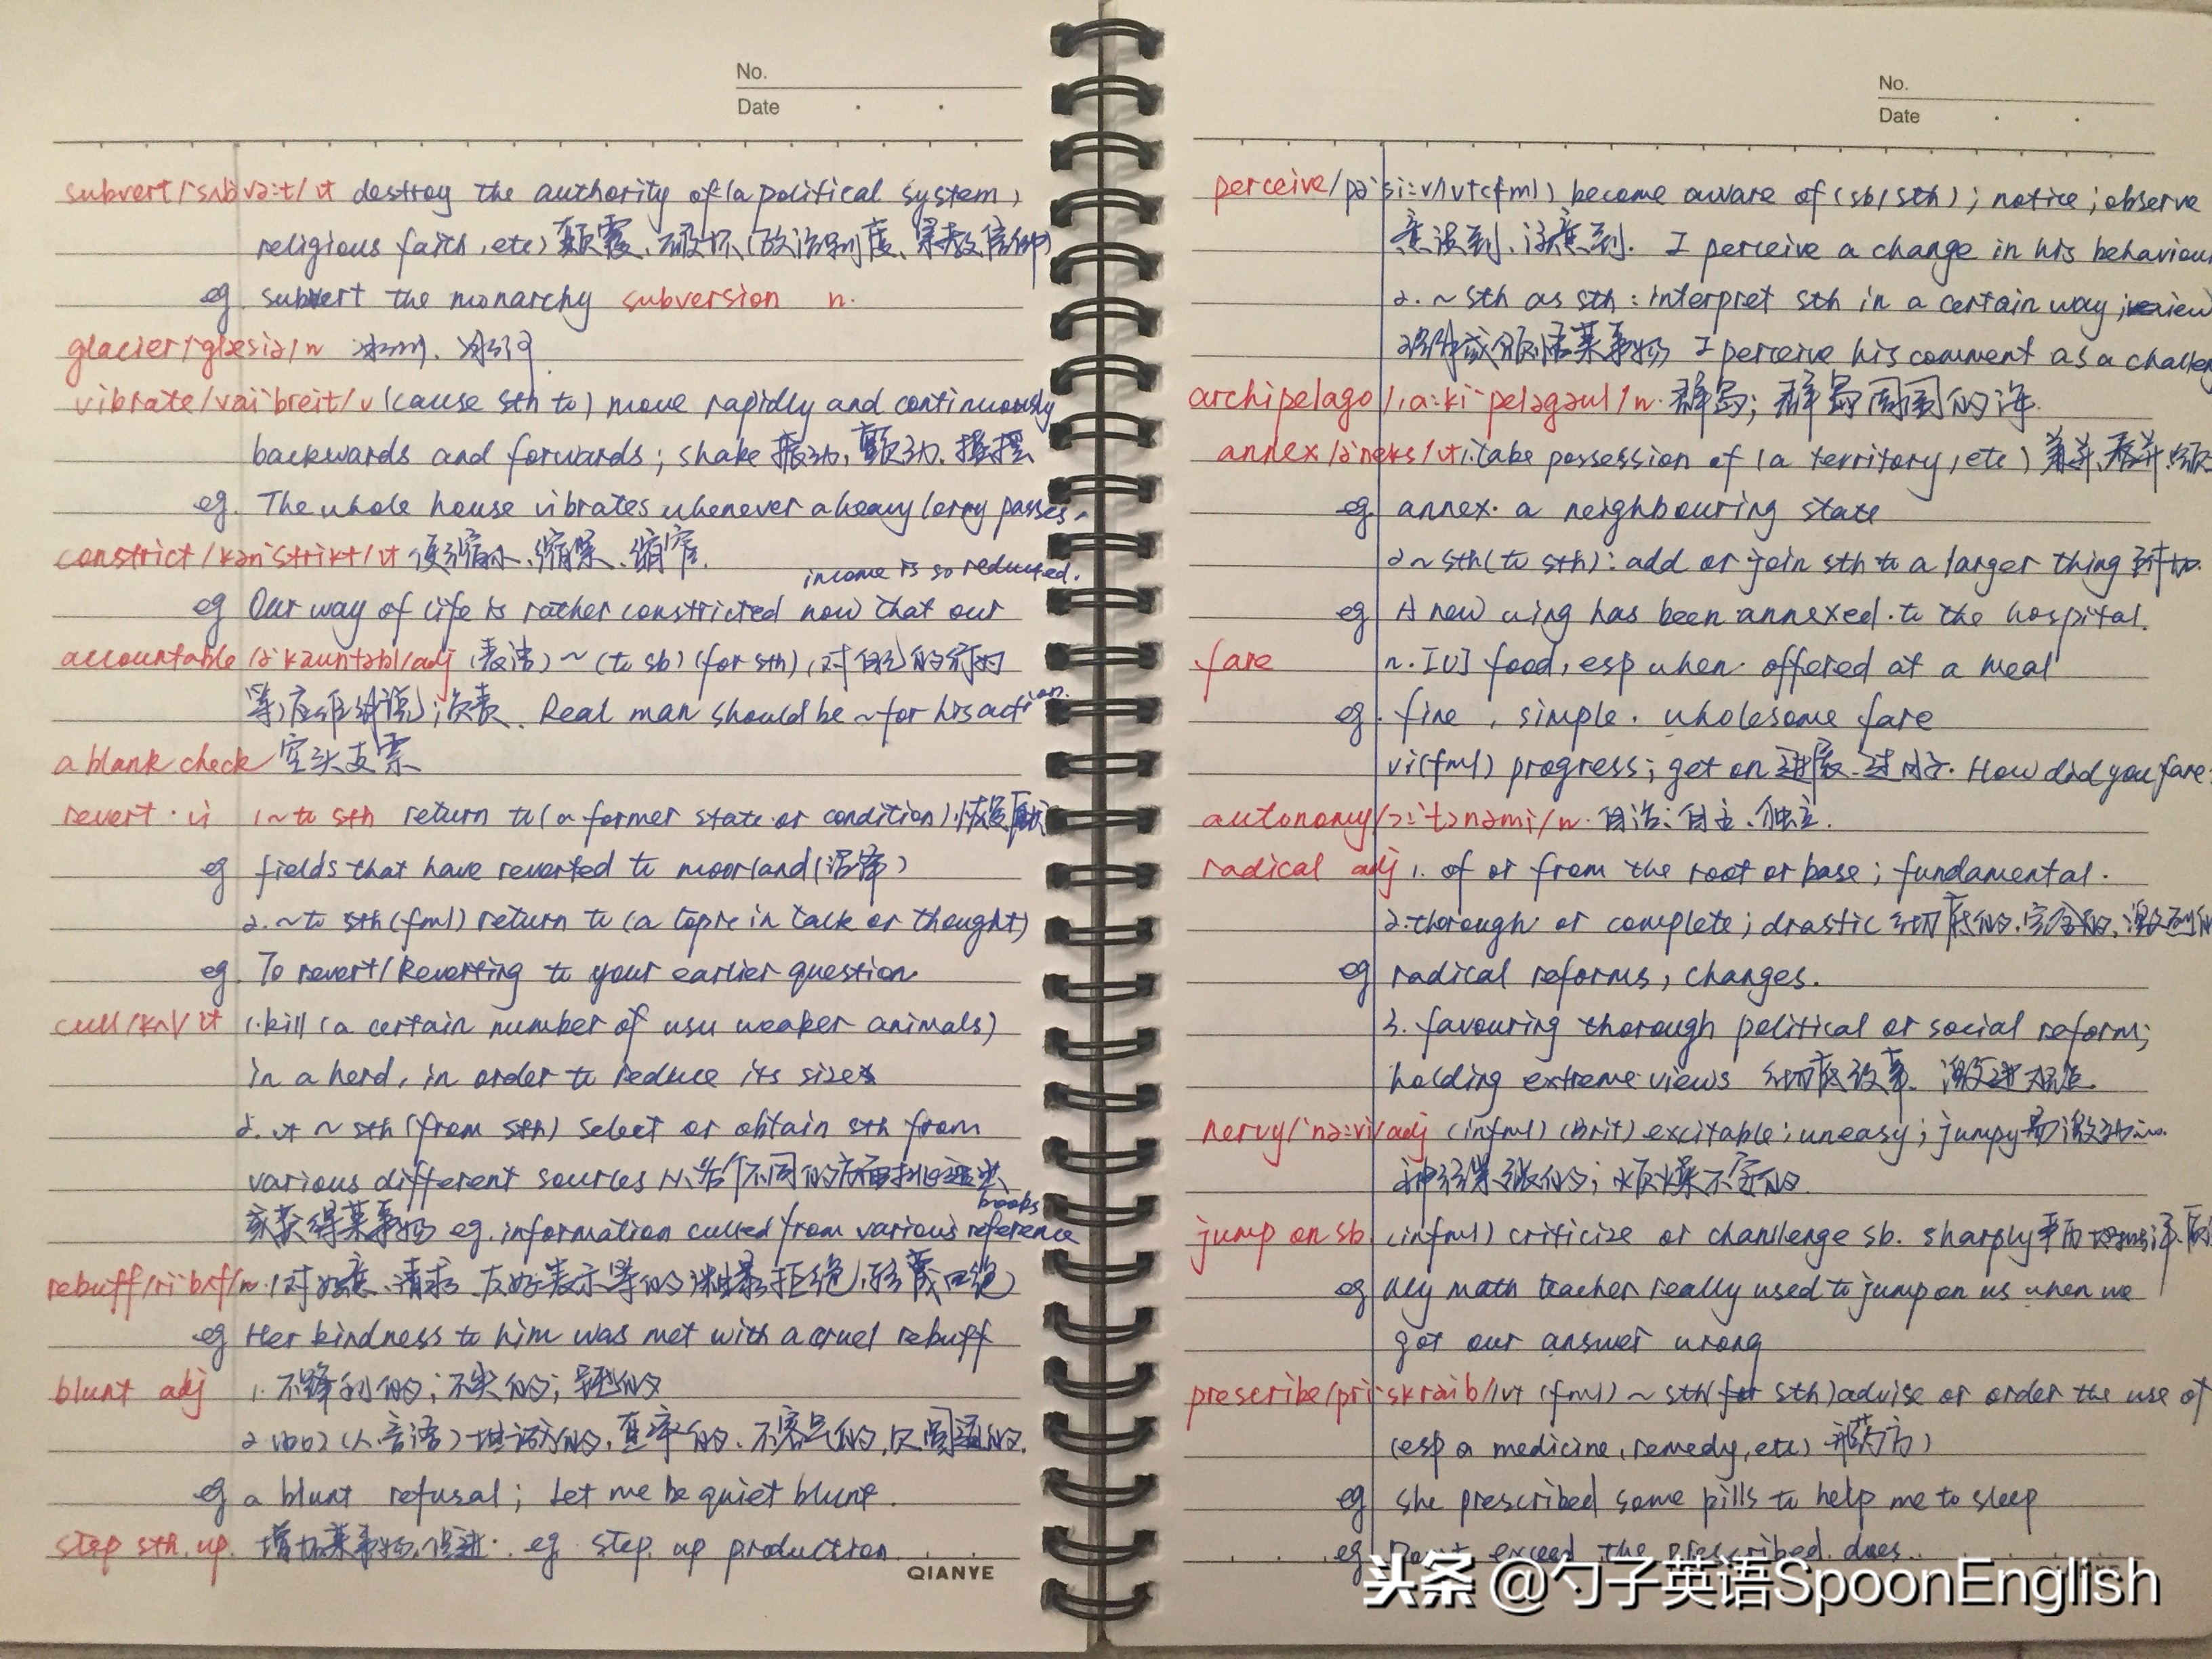 No.
Date
subvert /sʌbvə:t/ vt destroy the authority of (a political system,
religious faith, etc) 颠覆、破坏(政治制度、宗教信仰)
eg. subvert the monarchy subversion n.
glacier /'glæsiə/ n 冰川、冰河
vibrate /vai'breit/ v (cause sth to) move rapidly and continuously
backwards and forwards; shake 振动,颤动、摇摆
eg. The whole house vibrates whenever a heavy lorry passes.
constrict /kən'strikt/ vt 使缩小、缩紧、缩窄.
income is so reduced.
eg Our way of life is rather constricted now that our
accountable /ə'kauntəbl/ adj (表语) ~ (to sb) (for sth) (对自己的行为
等)应作解说;负责. Real man should be ~ for his action.
a blank check 空头支票
revert vi 1 ~ to sth return to (a former state or condition) 恢复原状
eg fields that have reverted to moorland (沼泽)
2. ~ to sth (fml) return to (a topic in talk or thought)
eg. To revert / Reverting to your earlier question
cull /kʌl/ vt 1. kill (a certain number of usu weaker animals)
in a herd, in order to reduce its size
2. vt ~ sth (from sth) select or obtain sth from
various different sources 从若干不同的方面挑选出
books
或获得某事物 eg. information culled from various reference
rebuff /ri'bʌf/ n. (对好意、请求、友好表示等的)粗暴拒绝,
eg Her kindness to him was met with a cruel rebuff
blunt adj 1. 不锋利的;不尖的;钝的
2. (人、言语)坦诚的,直率的、不客气的,
eg a blunt refusal; Let me be quiet blunt.
step sth. up. 增加某事物,促进. eg. step up production
QIANYE
No.
Date
perceive /pə'si:v/ vt (fml) become aware of (sb/sth); notice; observe
意识到、注意到. I perceive a change in his behaviour
2. ~ sth as sth: interpret sth in a certain way; view
理解或领悟某事物 I perceive his comment as a challen
archipelago /ˌa:ki'peləgəul/ n. 群岛; 群岛周围的海.
annex /ə'neks/ vt: take possession of (a territory, etc) 兼并、吞并、
eg annex a neighbouring state
2 ~ sth (to sth): add or join sth to a larger thing 附加.
eg A new wing has been annexed to the hospital.
fare n. [U] food, esp when offered at a meal
eg. fine, simple, wholesome fare
vi (fml) progress; get on 进展、过日子. How did you fare
autonomy /ɔ:'tɔnəmi/ n. 自治;自主、独立.
radical adj 1. of or from the root or base; fundamental.
2. thorough or complete; drastic 彻底的,完全的,激烈的
eg radical reforms, changes.
3. favouring thorough political or social reform;
holding extreme views 彻底改革、激进
nervy /'nə:vi/ adj (infml) (Brit) excitable; uneasy; jumpy 易激动的.
神经紧张的;烦燥不安的
jump on sb (infml) criticize or chanllenge sb. sharply
eg My math teacher really used to jump on us when we
got our answer wrong
prescribe /pri'skraib/ vt (fml) ~ sth (for sth) advise or order the use of
(esp a medicine, remedy, etc) 开药方)
eg she prescribed some pills to help me to sleep
eg Don't exceed the prescribed does.
头条 @勺子英语SpoonEnglish